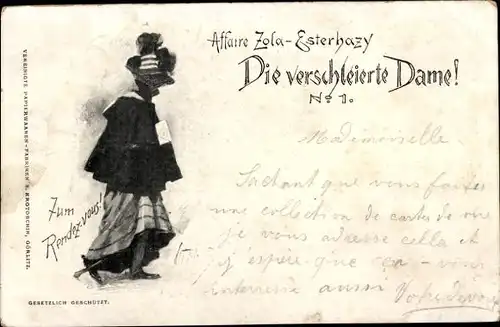 Affaire Zola-Esterhazy
Die verschleierte Dame!
No 1.
Mademoiselle
Sachant que vous faites
une collection de cartes de vue
je vous adresse cella et
j'y espère que cea vous
interresse aussi Votre
Zum
Rendez-vous!
VEREINIGTE PAPIERWAAREN-FABRIKEN S. KROTOSCHIN, GÖRLITZ.
GESETZLICH GESCHÜTZT.